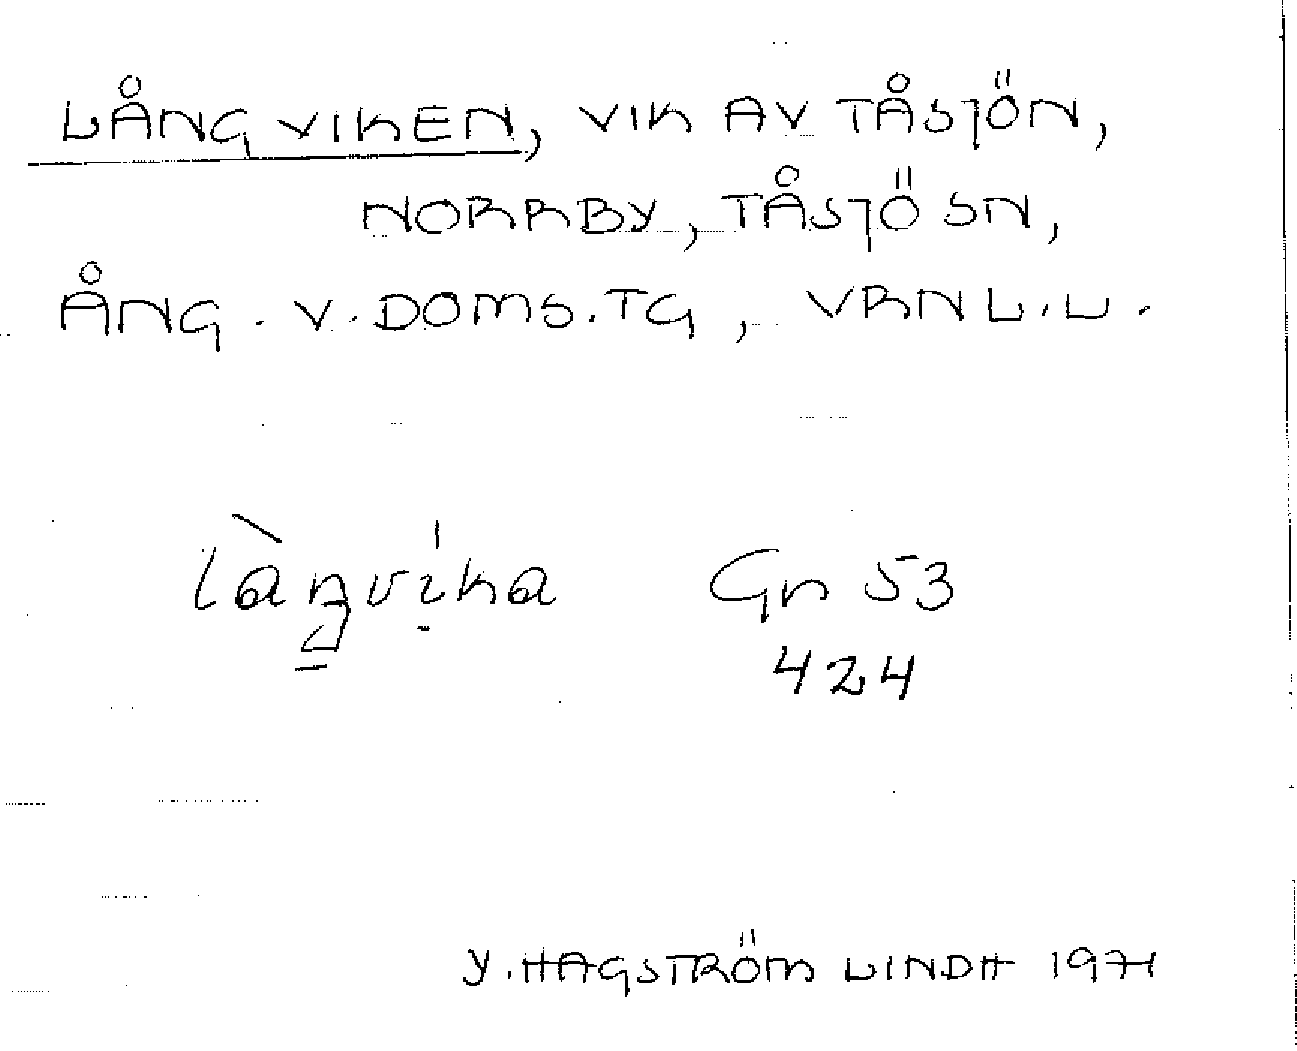 LÅNGVIKEN, VIK AV TÅSJÖN,
NORRBY, TÅSJÖ SN,
ÅNG. V. DOMS. TG, VRNL.L.
làŋvika Gn 53
424
Y. HAGSTRÖM LINDH 1971